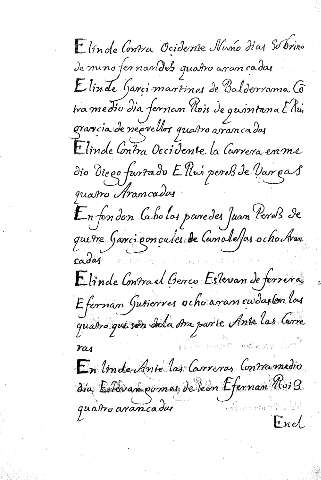 Elinde Contra Ocidente Nuño dias Sobrino
de nuño fernandes quatro arancadas
Elinde Garçi martines de Balderrama Cõ
tra medio dia fernan Rois de quintana E Rui
graçia de negrellos quatro arancadas
Elinde Contra Occidente la Carrera en me
dio Diego furtado E Rui peres de Vargas
quatro Arancadas
En fondon Cabo las paredes Juan Peres de
Garci gonçules de ocho Aran
cadas
Elinde Contra el Cierco Estevan de ferrera
E fernan Gutierres ocho arancadas Con las
quatro que son de la otra parte Ante las Carre
ras
En linde Ante las Carreras Contra medio
dia Estevan gomes de leon E fernan Rois
quatro arancadas
Enel